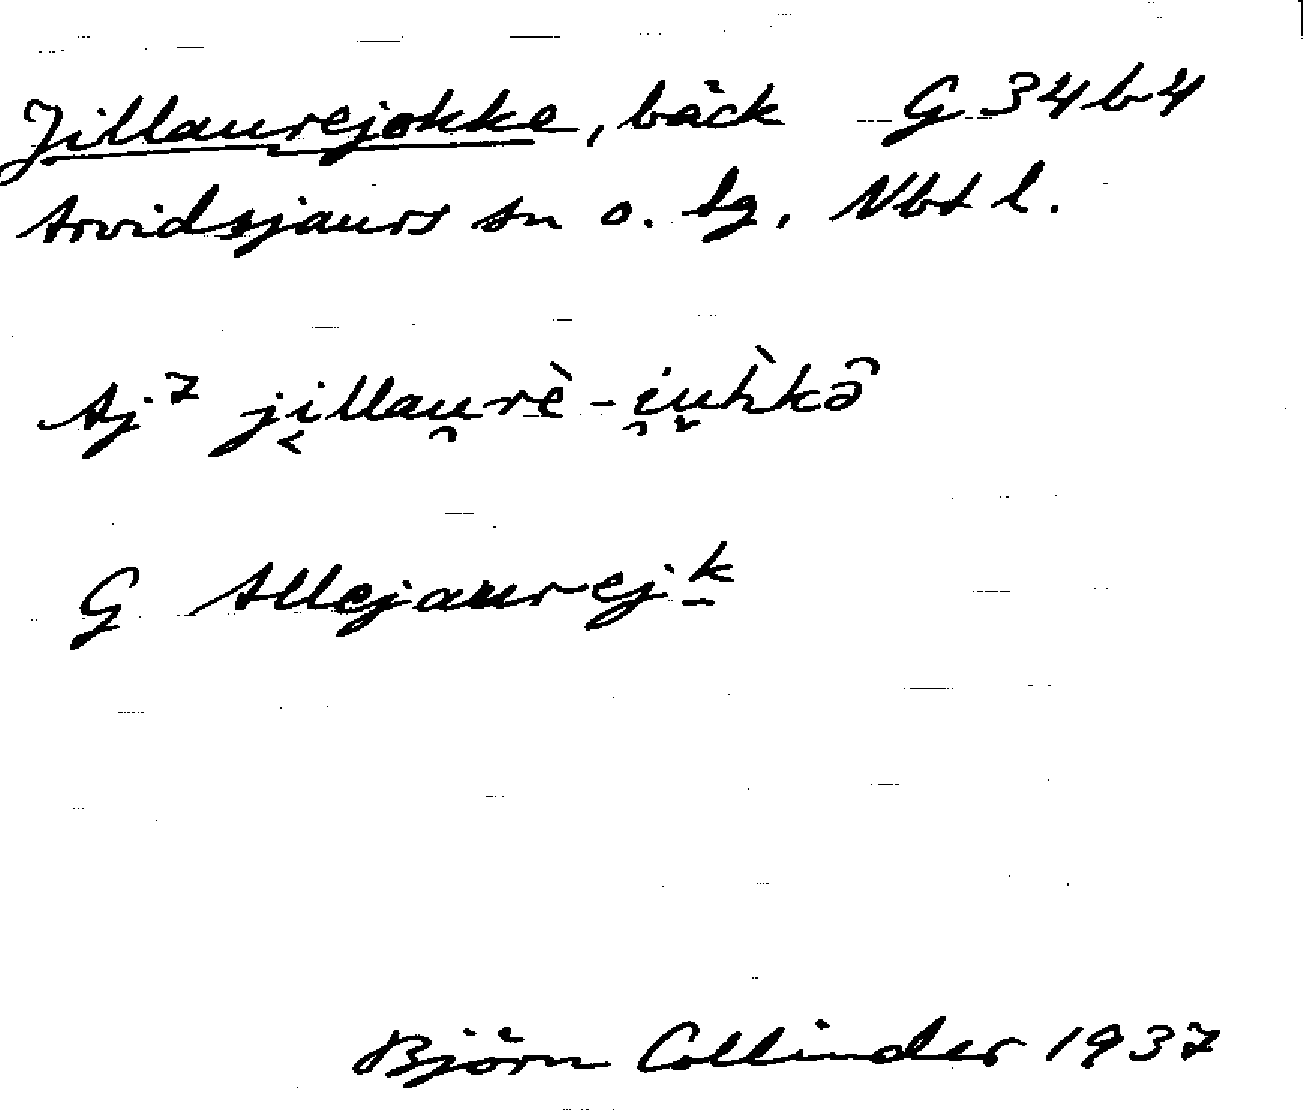 Jillaurejokke, bäck G 34 b 4
Arvidsjaurs sn o. tg, Nbt l.
Aj⁷ ji̮llau̯rè̱ - i̯u̬h̀kə̑
G Allejaurejk
Björn Collinder 1937